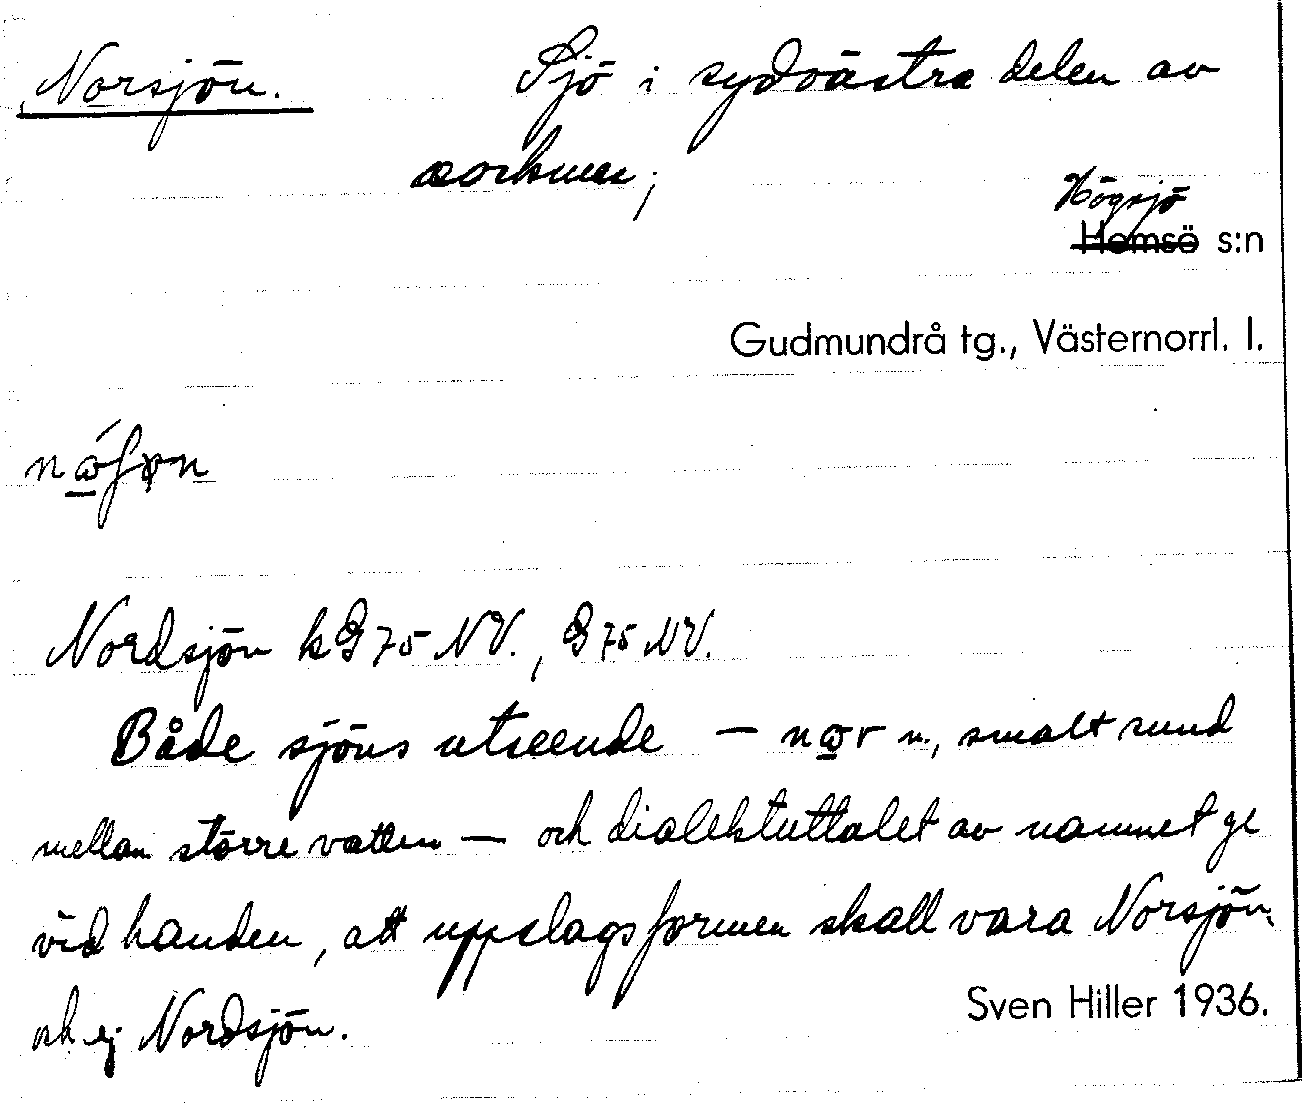 Norsjön. Sjö i sydvästra delen av
socknen;
Högsjö
Hemsö s:n
Gudmundrå tg., Västernorrl. l.
Nordsjön kG75 NV., G75 NV.
Både sjöns utseende — nor n., smalt sund
mellan större vatten — och dialektuttalet av namnet ge
vid handen, att uppslagsformen skall vara Norsjön
och ej Nordsjön.
Sven Hiller 1936.